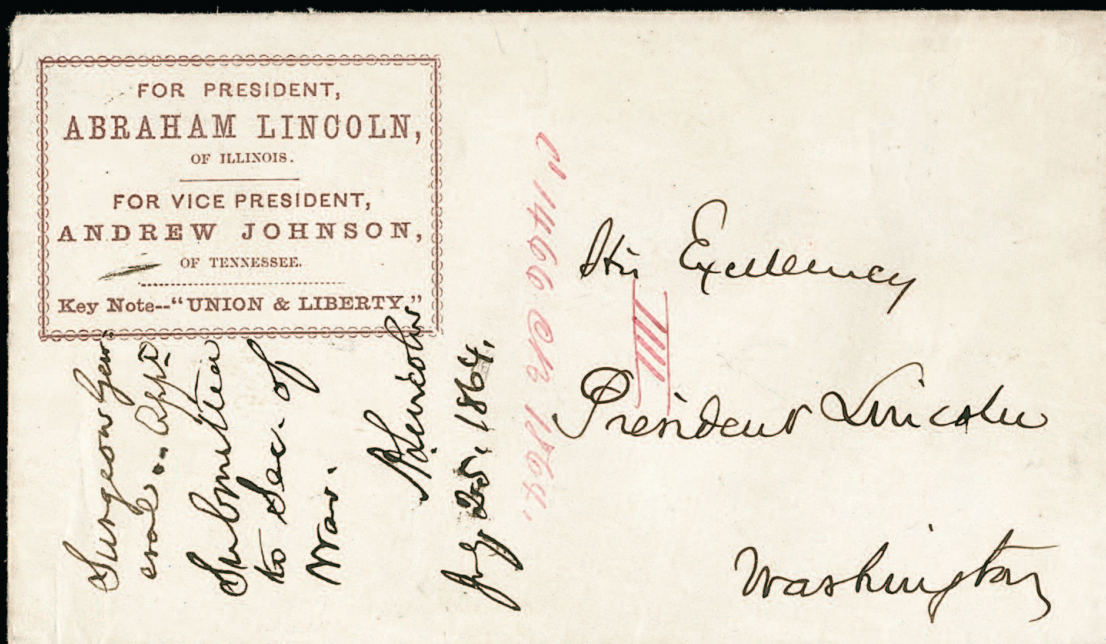 FOR PRESIDENT,
ABRAHAM LINCOLN,
OF ILLINOIS.
FOR VICE PRESIDENT,
ANDREW JOHNSON,
OF TENNESSEE.
Key Note--"UNION & LIBERTY."
Surgeon Gen-
eral - Appt
Submitted
to Sec. of
War.
A. Lincoln
July 25, 1864.
1466 1864.
His Excellency
President Lincoln
Washington